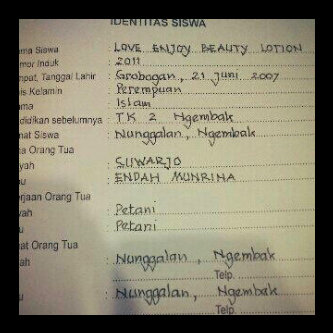 IDENTITAS SISWA
ma Siswa : LOVE ENJOY BEAUTY LOTION
mor Induk : 2011
mpat, Tanggal Lahir : Grobogan, 21 Juni 2007
is Kelamin : Perempuan
ama : Islam
didikan sebelumnya : TK 2 Ngembak
mat Siswa : Nunggalan, Ngembak
a Orang Tua
yah : SUWARJO
u : ENDAH MUNRINA
erjaan Orang Tua
yah : Petani
u : Petani
at Orang Tua
ah : Nunggalan, Ngembak
Telp.
u : Nunggalan, Ngembak
Telp.